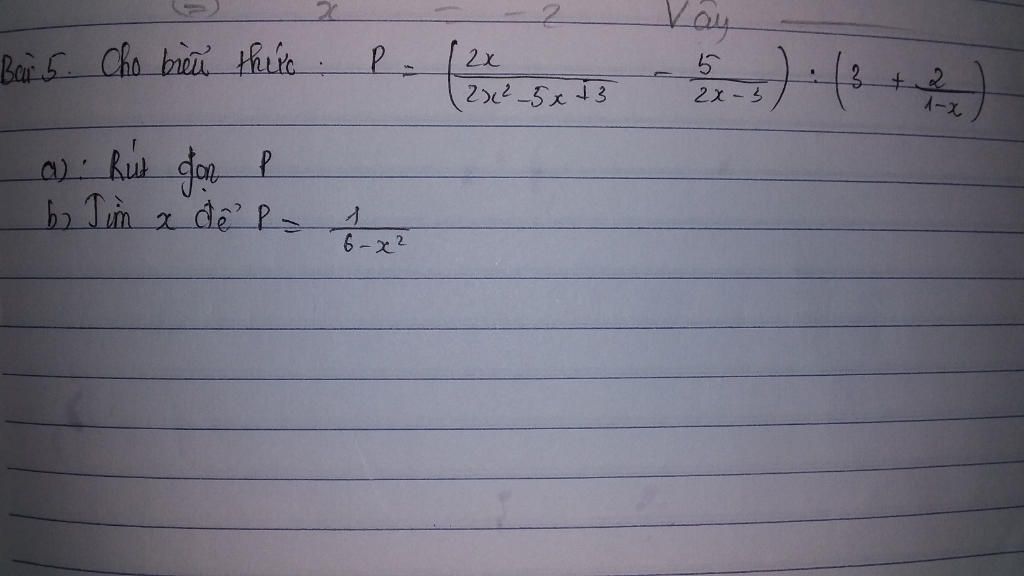 (=) x = -2 Vậy
Bài 5. Cho biểu thức: P = (2x/(2x² - 5x + 3) - 5/(2x - 3)) : (3 + 2/(1 - x))
a): Rút gọn P
b) Tìm x để P = 1/(6 - x²)